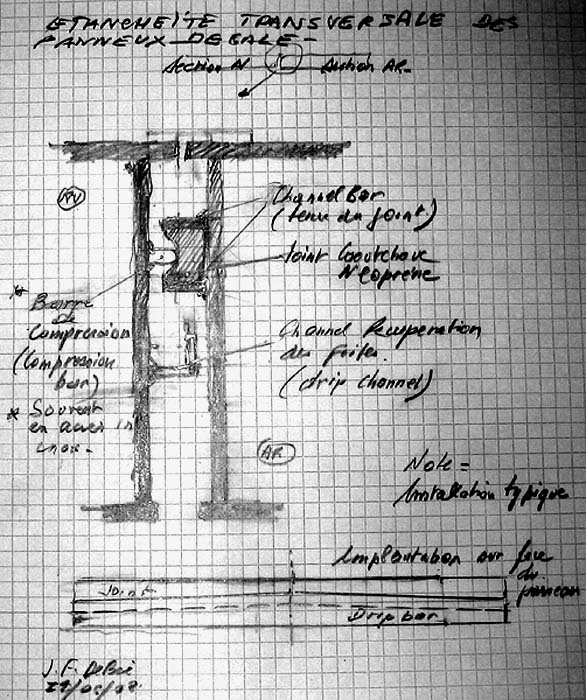 ETANCHEITE TRANSVERSALE DES
PANNEUX DE CALE -
Section AV
Section AR-
AV
Channel Bar
(tenue du joint)
Joint Caoutchouc
Neoprène
* Barre
de
Compression
(Compression
bar)
* Souvent
en acier in
inox.
Channel Recuperation
des fuites.
(drip channel)
AR
Note =
Installation typique
Implantation sur face
du
panneau
Joint
Drip bar
J.F. DeBoi